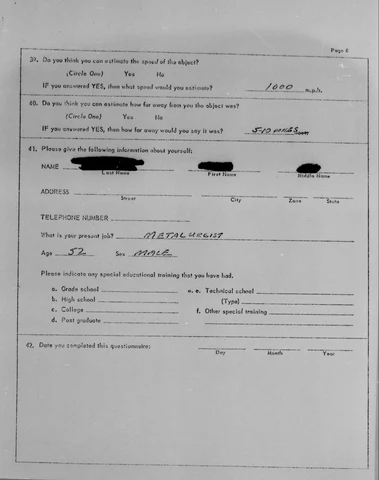 Page 6
39. Do you think you can estimate the speed of the object?
(Circle One) Yes No
IF you answered YES, then what speed would you estimate? 1000 m.p.h.
40. Do you think you can estimate how far away from you the object was?
(Circle One) Yes No
IF you answered YES, then how far away would you say it was? 5-10 MILES
41. Please give the following information about yourself:
NAME
Last Name First Name Middle Name
ADDRESS
Street City Zone State
TELEPHONE NUMBER
What is your present job? METALURGIST
Age 52 Sex MALE
Please indicate any special educational training that you have had.
a. Grade school e. Technical school
b. High school (Type)
c. College f. Other special training
d. Post graduate
42. Date you completed this questionnaire:
Day Month Year